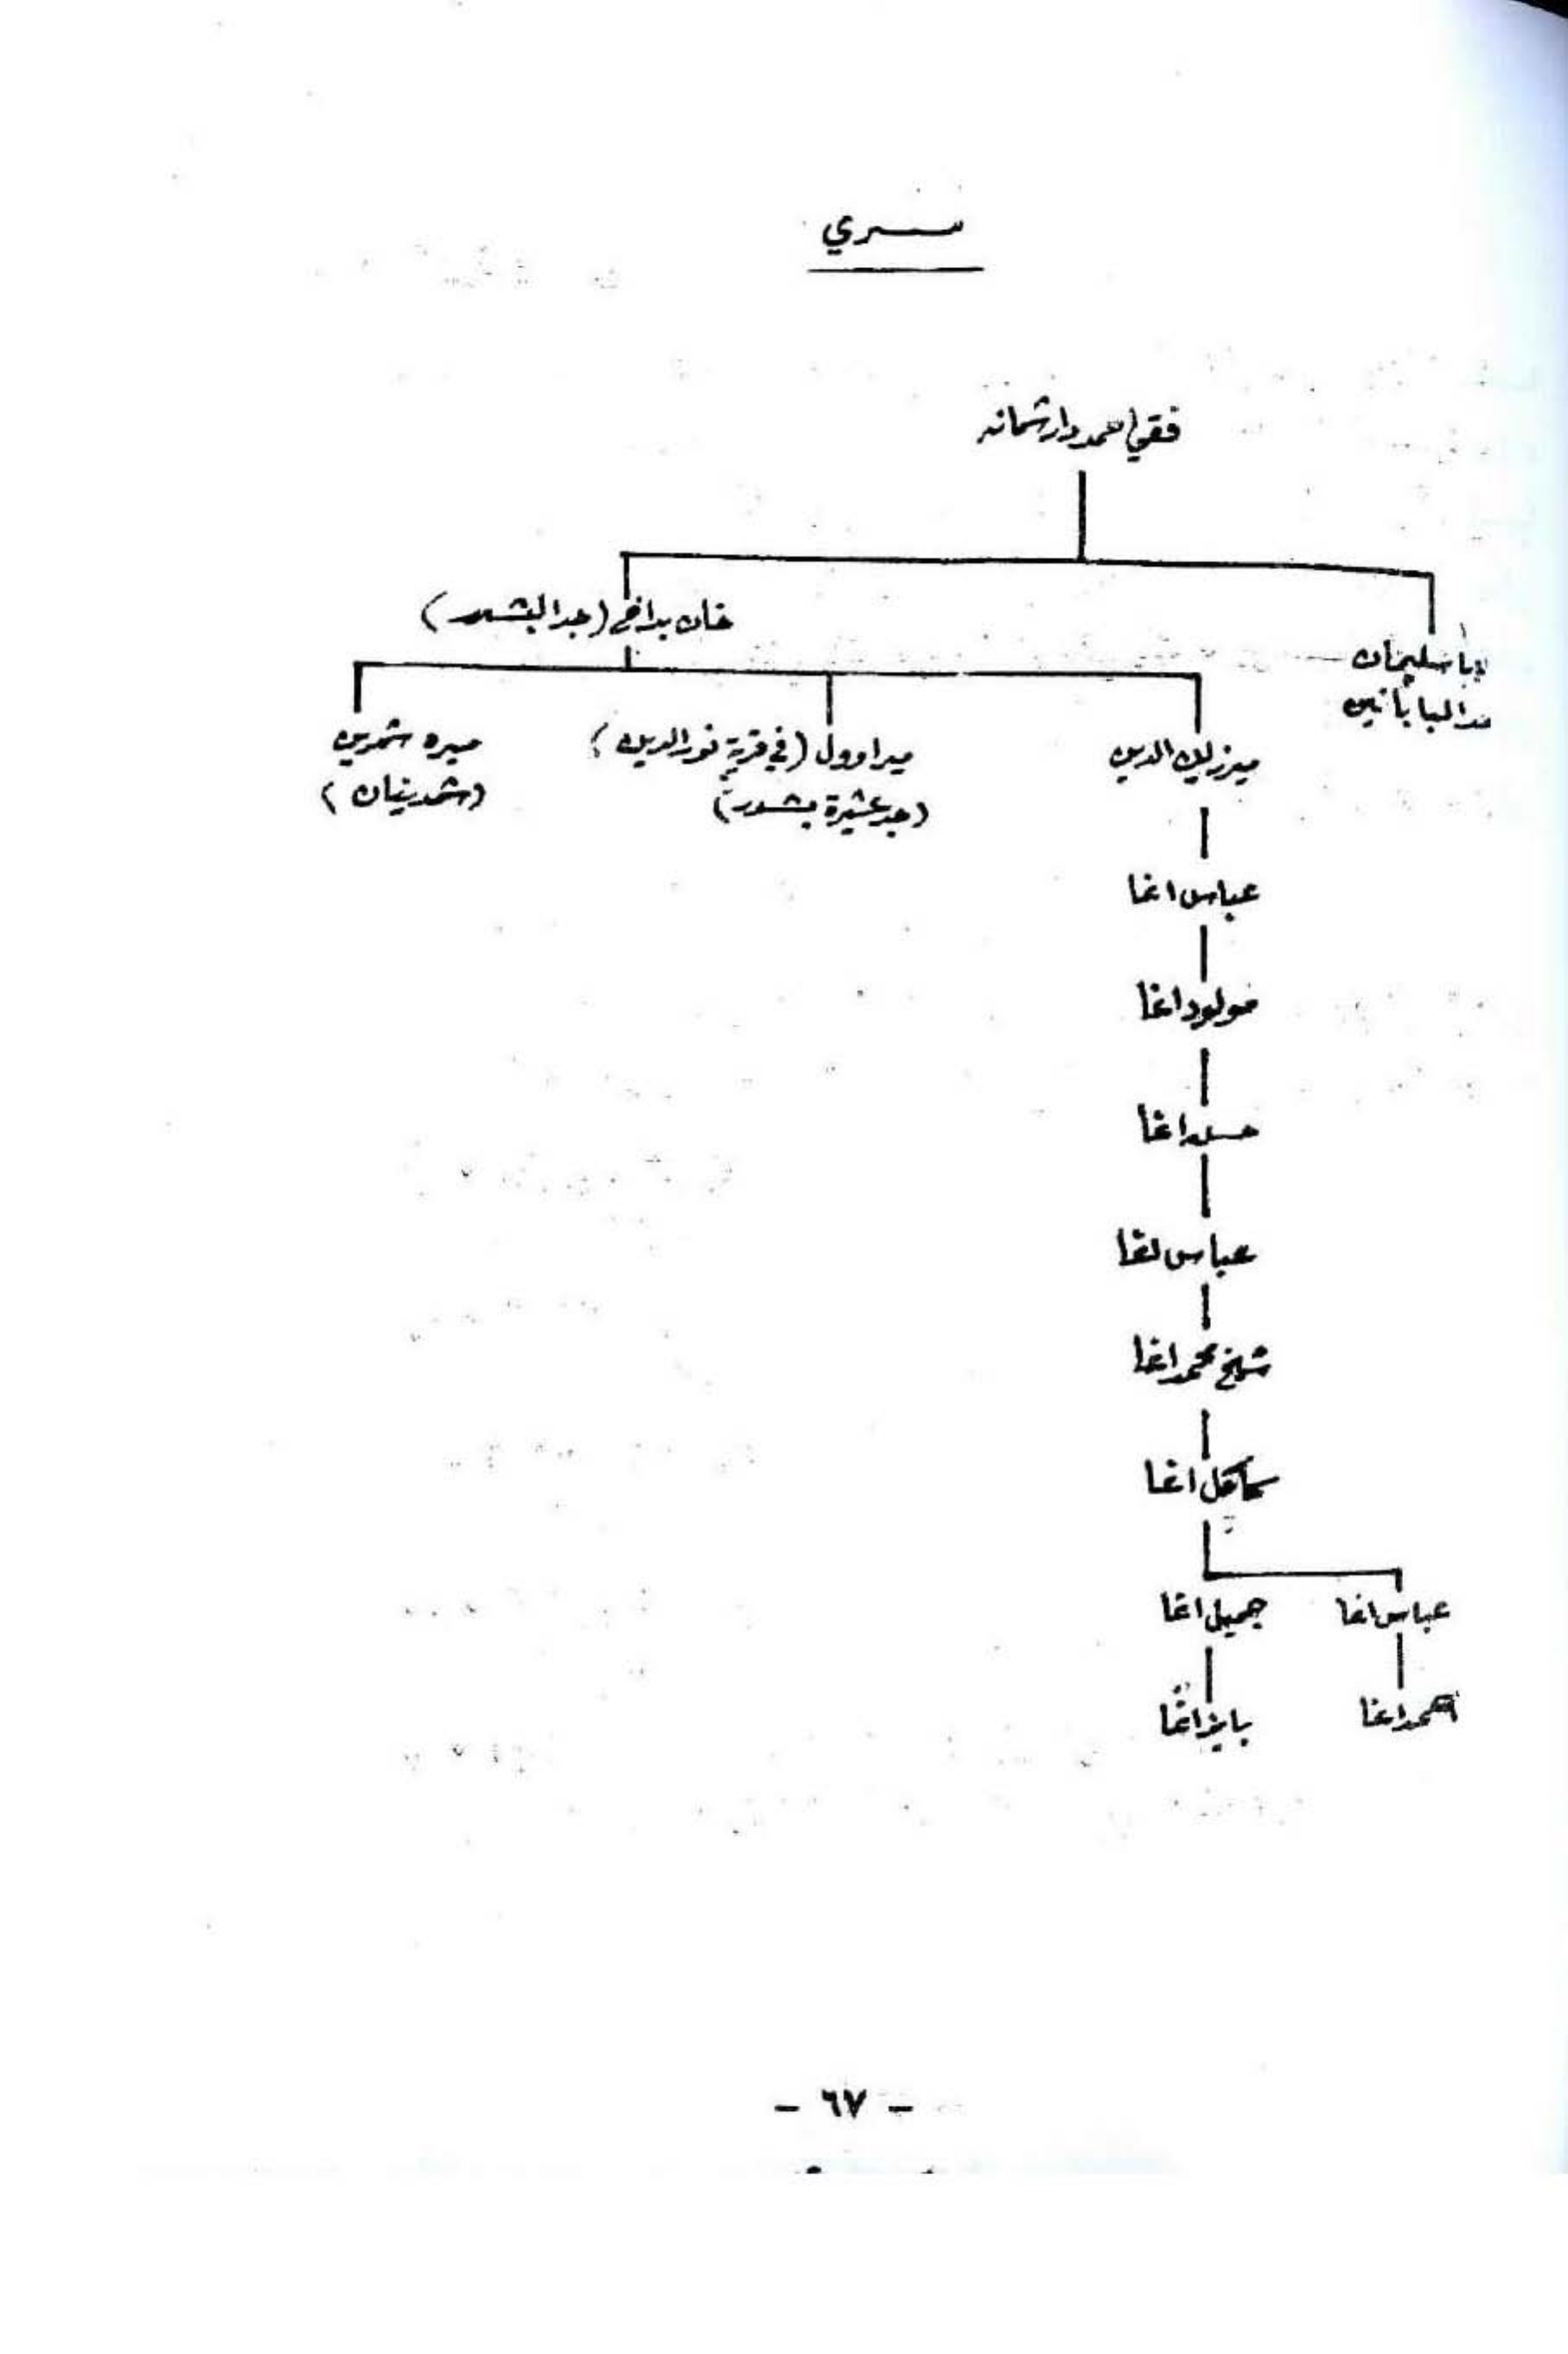 سري
فقي احمد دارشمانه
خان بداغ (جد البشدر)
بابا سليمان
البابانيين
مير زين الدين
ميراوول (في قرية نورالدين)
(جد عشيرة بشدر)
ميره شمدين
(شمدينان)
عباس اغا
مولود اغا
حسن اغا
عباس اغا
شيخ محمد اغا
اغا
عباس اغا
جميل اغا
احمد اغا
بايز اغا
- ٦٧ -